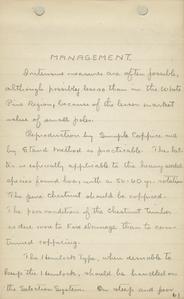 MANAGEMENT.
Intensive measures are often possible,
although possibly less so than in the White
Pine Region, because of the lesser market
value of small poles.
Reproduction by Simple Coppice and
by Stand Method is practicable. The lat-
ter is especially applicable to the heavy seeded
species found here, with a 50-60 yr. rotation.
The pure Chestnut should be coppiced.
The poor condition of the Chestnut timber
is due more to fire damage than to contin-
ued coppicing.
The Hemlock Type, when desirable to
keep the Hemlock, should be handled on
the Selection System. On steep and poor